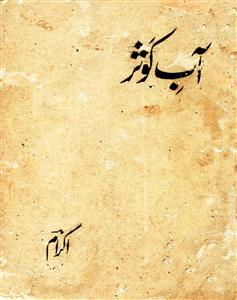 آبِ کَوثر
اکرام